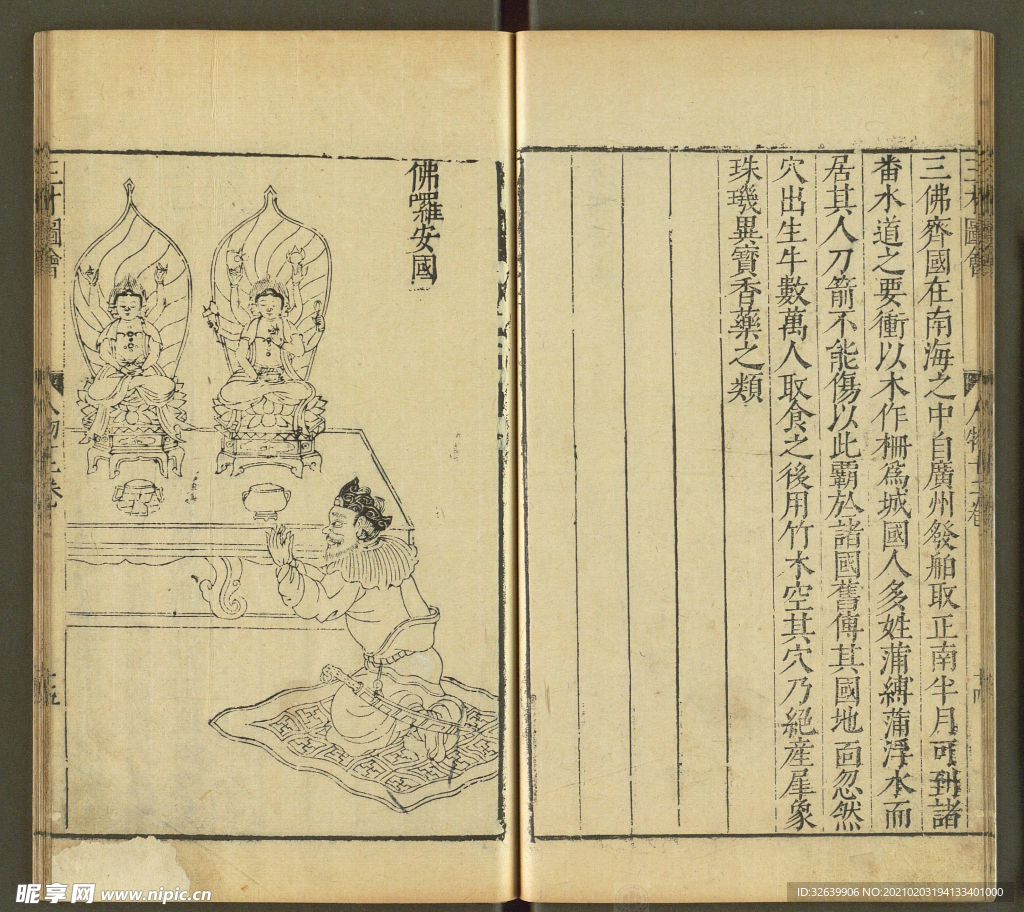 三才圖會
人物十二卷
十四
三佛齊國在南海之中自廣州發舶取正南半月可到諸
番水道之要衝以木作柵爲城國人多姓蒲縛蒲浮水而
居其人刀箭不能傷以此霸於諸國舊傳其國地面忽然
穴出生牛數萬人取食之後用竹木空其穴乃絕產犀象
珠璣異寶香藥之類
佛囉安國
三才圖會
人物十二卷
十五
昵享网 www.nipic.cn
ID:32639906 NO:20210203194133401000